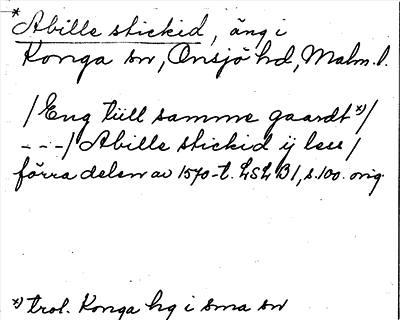 * Abille stickid, äng i
Konga sn, Onsjö hd, Malm. l.
/Eng tiill samme gaardt *)/
---/ Abille stickid ij less /
förra delen av 1570-t. LSL B1, s. 100. orig.
*) trol. Konga hg i sma sn